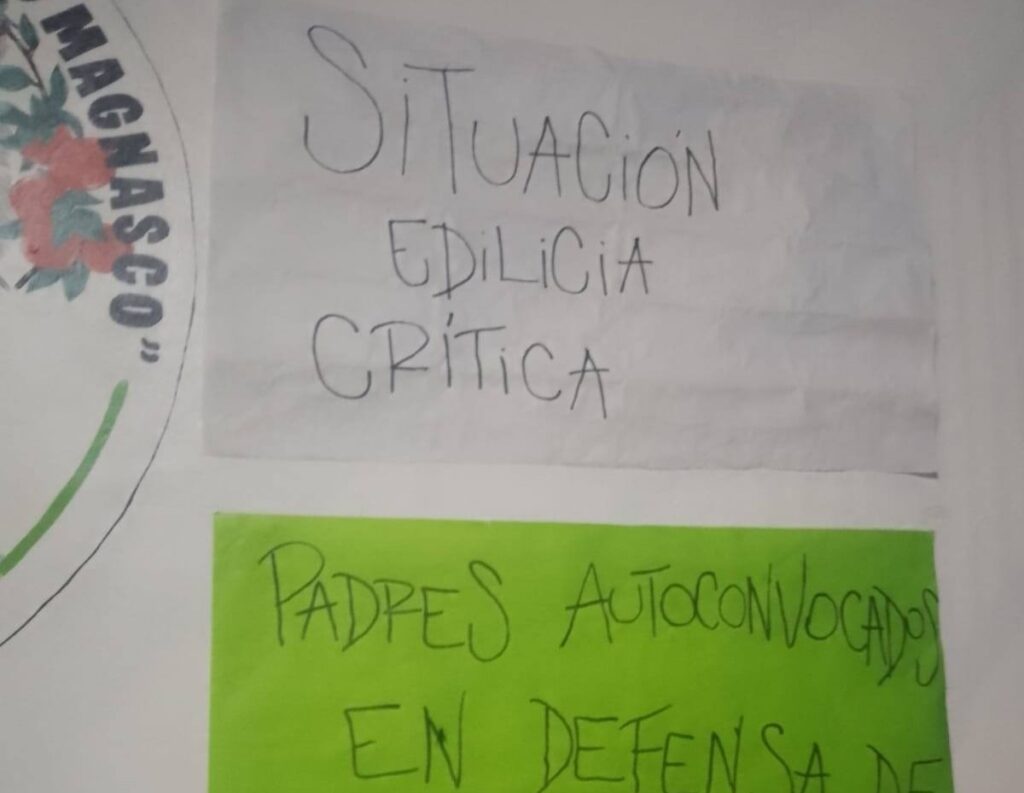 MAGNASCO”
SiTUACiÓN
EDiLiCiA
CRÍTiCA
PADRES AUTOCONVOCADOS
EN DEFENSA DE